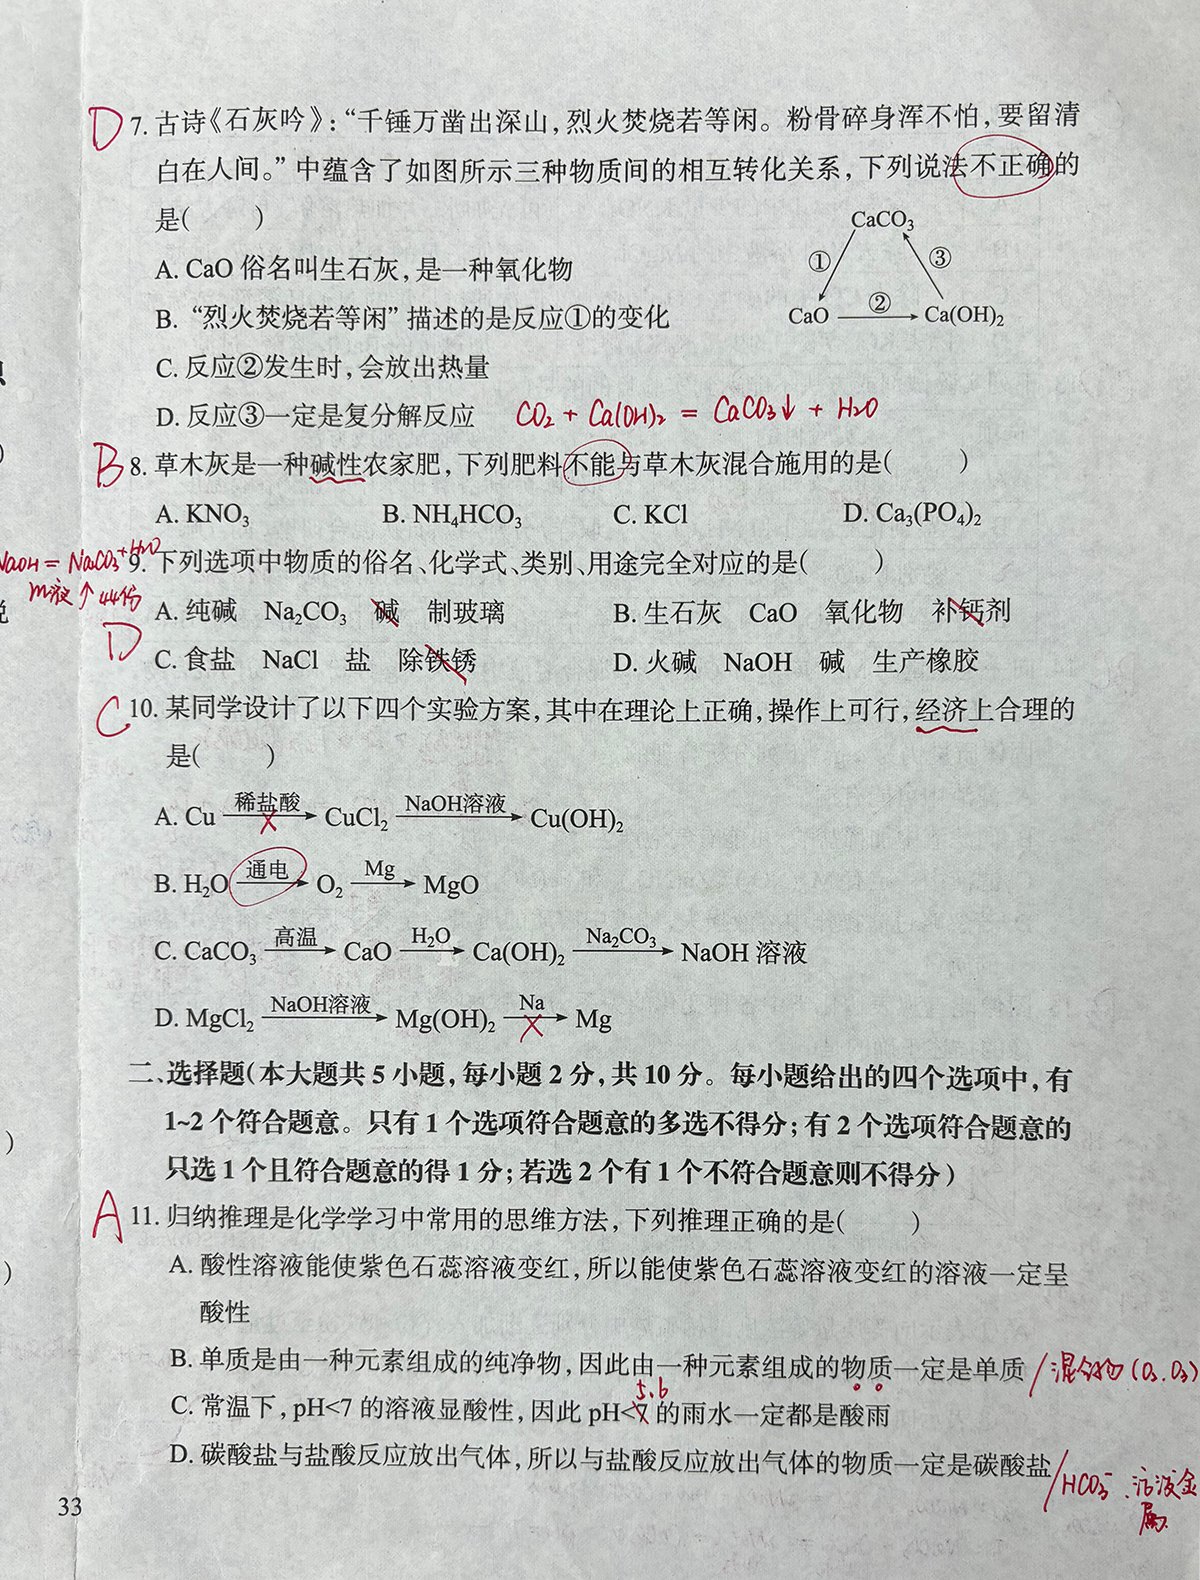 D 7. 古诗《石灰吟》:“千锤万凿出深山,烈火焚烧若等闲。粉骨碎身浑不怕,要留清
白在人间。”中蕴含了如图所示三种物质间的相互转化关系,下列说法不正确的
是(  )
CaCO₃
① ③
CaO ② Ca(OH)₂
A. CaO 俗名叫生石灰,是一种氧化物
B. “烈火焚烧若等闲”描述的是反应①的变化
C. 反应②发生时,会放出热量
D. 反应③一定是复分解反应 CO₂ + Ca(OH)₂ = CaCO₃↓ + H₂O
B 8. 草木灰是一种碱性农家肥,下列肥料不能与草木灰混合施用的是(  )
A. KNO₃ B. NH₄HCO₃ C. KCl D. Ca₃(PO₄)₂
NaOH = Na₂CO₃ + H₂O
9. 下列选项中物质的俗名、化学式、类别、用途完全对应的是(  )
m液↑ 44份
A. 纯碱 Na₂CO₃ 碱 制玻璃 B. 生石灰 CaO 氧化物 补钙剂
D
C. 食盐 NaCl 盐 除铁锈 D. 火碱 NaOH 碱 生产橡胶
C 10. 某同学设计了以下四个实验方案,其中在理论上正确,操作上可行,经济上合理的
是(  )
A. Cu 稀盐酸→ CuCl₂ NaOH溶液→ Cu(OH)₂
B. H₂O 通电→ O₂ Mg→ MgO
C. CaCO₃ 高温→ CaO H₂O→ Ca(OH)₂ Na₂CO₃→ NaOH 溶液
D. MgCl₂ NaOH溶液→ Mg(OH)₂ Na→ Mg
二、选择题(本大题共 5 小题,每小题 2 分,共 10 分。每小题给出的四个选项中,有
1~2 个符合题意。只有 1 个选项符合题意的多选不得分;有 2 个选项符合题意的
只选 1 个且符合题意的得 1 分;若选 2 个有 1 个不符合题意则不得分)
A 11. 归纳推理是化学学习中常用的思维方法,下列推理正确的是(  )
A. 酸性溶液能使紫色石蕊溶液变红,所以能使紫色石蕊溶液变红的溶液一定呈
酸性
B. 单质是由一种元素组成的纯净物,因此由一种元素组成的物质一定是单质 /混合物(O₂、O₃)
5.6
C. 常温下,pH<7 的溶液显酸性,因此 pH<7 的雨水一定都是酸雨
D. 碳酸盐与盐酸反应放出气体,所以与盐酸反应放出气体的物质一定是碳酸盐
/HCO₃⁻、活泼金
属
33